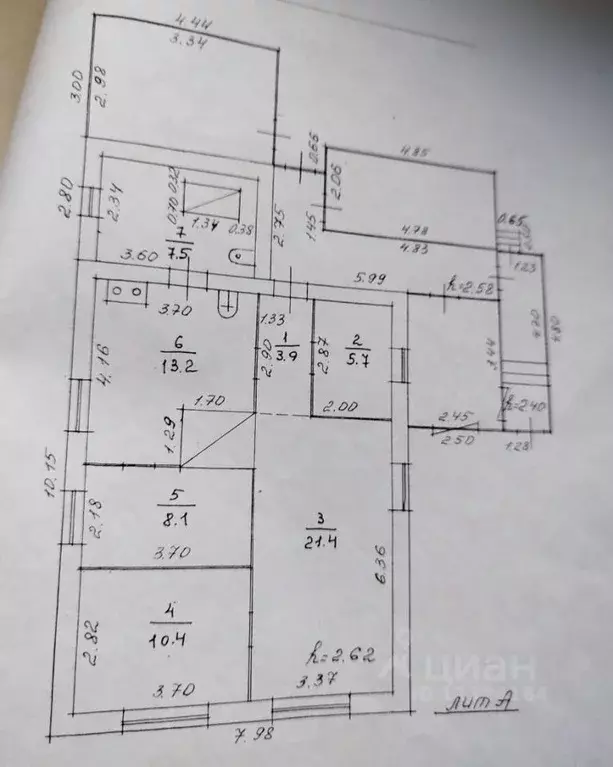 4.44
3.34
3.00
2.98
0.65
4.85
2.06
1.45
4.78
4.83
0.65
1.23
2.80
2.34
0.70
0.32
1.34
0.38
2.75
7
7.5
3.60
5.99
h=2.58
4.70
4.80
3.70
1.33
6
13.2
4.16
1
3.9
2.90
2.87
2
5.7
3.44
2.00
h=2.40
1.70
1.29
2.45
2.50
1.28
10.15
5
8.1
2.18
3.70
3
21.4
6.36
4
10.4
2.82
3.70
h=2.62
3.37
7.98
лит А
циан